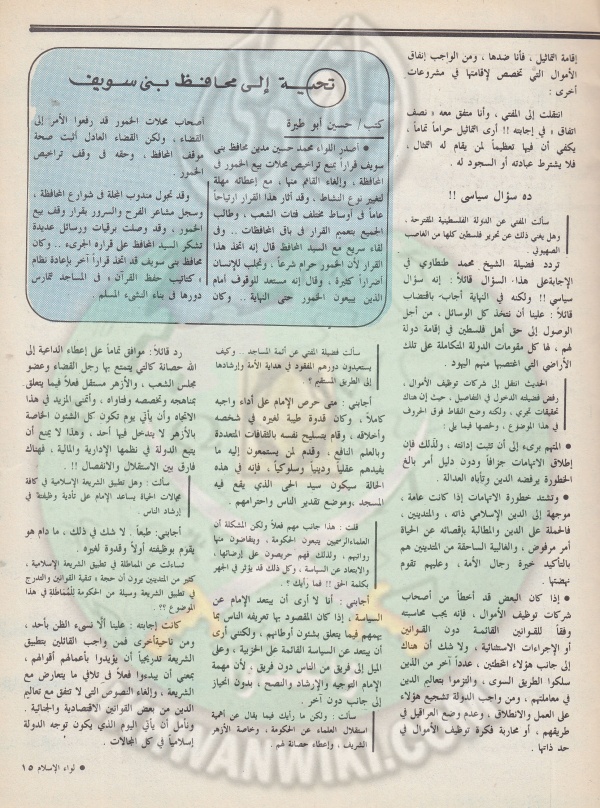 إقامة التماثيل ، فأنا ضدها ، ومن الواجب إنفاق
الأموال التى تخصص لإقامتها في مشروعات
أخرى :
انتقلت إلى المفتي ، وأنا متفق معه « نصف
اتفاق » في إجابته !! أرى التماثيل حراماً تماماً ،
يكفى أن فيها تعظيماً لمن يقام له التمثال ،
فلا يشترط عبادته أو السجود له .
ده سؤال سياسى !!
سألت المفتي عن الدولة الفلسطينية المقترحة ،
وهل يغنى ذلك عن تحرير فلسطين كلها من الغاصب
الصهيوني
تردد فضيلة الشيخ محمد طنطاوي في
الإجابةعلى هذا السؤال قائلاً : إنه سؤال
سياسى !! ولكنه في النهاية أجاب باقتضاب
قائلاً : علينا أن نتخذ كل الوسائل ، من أجل
الوصول إلى حق أهل فلسطين في إقامة دولة
لهم ، لها كل مقومات الدولة المتكاملة على تلك
الأراضي التى اغتصبها منهم اليهود .
الحديث انتقل إلى شركات توظيف الأموال ،
رفض فضيلته الدخول في التفاصيل ، حيث إن هناك
تحقيقات تجرى ، ولكنه وضع النقاط فوق الحروف
في هذا الموضوع ، ولخصها فيما يلى :
● المتهم برىء إلى أن تثبت إدانته ، ولذلك فإن
إطلاق الاتهامات جزافاً ودون دليل أمر بالغ
الخطورة يرفضه الدين وتأباه العدالة .
● وتشتد خطورة الاتهامات إذا كانت عامة ،
موجهة إلى الدين الإسلامى ذاته ، والمتدينين ،
فالحملة على الدين والمطالبة بإقصائه عن الحياة
أمر مرفوض ، والغالبية الساحقة من المتدينين هم
بالتأكيد خيرة رجال الأمة ، وعليهم تقوم
نهضتها .
● إذا كان البعض قد أخطأ من أصحاب
شركات توظيف الأموال ، فإنه يجب محاسبته
وفقاً للقوانين القائمة دون القوانين
أو الإجراءات الاستثنائية ، ولا شك أن هناك
إلى جانب هؤلاء المخطئين ، عدداً آخر من الذين
سلكوا الطريق السوى ، والتزموا بتعاليم الدين
في معاملتهم ، ومن واجب الدولة تشجيع هؤلاء
على العمل والانطلاق ، وعدم وضع العراقيل في
طريقهم ، أو محاربة فكرة توظيف الأموال في
حد ذاتها .
تحية إلى محافظ بنى سويف
كتب / حسين أبو طيرة
● أصدر اللواء محمد حسين مدين محافظ بنى
سويف قراراً بمنع تراخيص محلات بيع الخمور في
المحافظة ، وإلغاء القائم منها ، مع إعطائه مهلة
لتغيير نوع النشاط ، وقد أثار هذا القرار ارتياحاً
عاماً في أوساط مختلف فئات الشعب ، وطالب
الجميع بتعميم القرار في باقى المحافظات .. وفى
لقاء سريع مع السيد المحافظ قال إنه اتخذ هذا
القرار لأن الخمور حرام شرعاً ، وتجلب للإنسان
أضراراً كثيرة ، وقال إنه مستعد للوقوف أمام
الذين يبيعون الخمور حتى النهاية .. وكان
أصحاب محلات الخمور قد رفعوا الأمر إلى
القضاء ، ولكن القضاء العادل أثبت صحة
موقف المحافظ ، وحقه في وقف تراخيص
الخمور .
وقد تجول مندوب المجلة في شوارع المحافظة ،
وسجل مشاعر الفرح والسرور بقرار وقف بيع
الخمور ، وقد وصلت برقيات ورسائل عديدة
تشكر السيد المحافظ على قراره الجرىء .. وكان
محافظ بنى سويف قد اتخذ قراراً آخر بإعادة نظام
« كتاتيب حفظ القرآن » في المساجد لتمارس
دورها في بناء النشىء المسلم .
سألت فضيلة المفتي عن أئمة المساجد .. وكيف
يستعيدون دورهم المفقود في هداية الأمة وإرشادها
إلى الطريق المستقيم ؟
أجابنى : متى حرص الإمام على أداء واجبه
كاملاً ، وكان قدوة طيبة لغيره في شخصه
وأخلاقه ، وقام بتسليح نفسه بالثقافات المتعددة
وبالعلم النافع ، وقدم لمن يستمعون إليه ما
يفيدهم عقلياً ودينياً وسلوكياً ، فإنه في هذه
الحالة سيكون سيد الحى الذى يقع فيه
المسجد ،وموضع تقدير الناس واحترامهم .
قلت : هذا جانب مهم فعلاً ولكن المشكلة أن
العلماءالرسميين يتبعون الحكومة ، ويتقاضون منها
رواتبهم ، ولذلك فهم حريصون على إرضائها ،
والابتعاد عن السياسة ، وكل ذلك قد يؤثر في الجهر
بكلمة الحق !! فما رأيك ؟ .
أجابنى : أنا لا أرى أن يبتعد الإمام عن
السياسة ، إذا كان المقصود بها تعريفه الناس بما
يهمهم فيما يتعلق بشئون أوطانهم ، ولكننى أرى
أن يبتعد عن السياسة القائمة على الحزبية ، وعلى
الميل إلى فريق من الناس دون فريق ، لأن مهمة
الإمام التوجيه والإرشاد والنصح ، بدون انحياز
إلى جانب دون آخر .
سألت : ولكن ما رأيك فيما يقال عن أهمية
استقلال العلماء عن الحكومة ، وخاصة الأزهر
الشريف ، وإعطاء حصانة لهم .
رد قائلاً : موافق تماماً على إعطاء الداعية إلى
الله حصانة كالتى يتمتع بها رجل القضاء وعضو
مجلس الشعب ، والأزهر مستقل فعلاً فيما يتعلق
بمناهجه وتخصصه وفتاواه ، وأتمنى المزيد في هذا
الاتجاه وأن يأتى يوم تكون كل الشئون الخاصة
بالأزهر لا يتدخل فيها أحد ، وهذا لا يمنع أن
يتبع الدولة في نظمها الإدارية والمالية ، فهناك
فارق بين الاستقلال والانفصال !! .
سألت : وهل تطبيق الشريعة الإسلامية في كافة
مجالات الحياة يساعد الإمام على تأدية وظيفته في
إرشاد الناس .
أجابنى: طبعاً . لا شك في ذلك ، ما دام هو
يقوم بوظيفته أولاً وقدوة لغيره .
تساءلت عن المماطلة في تطبيق الشريعة الإسلامية ،
كثير من المتدينين يرون أن حجة ، تنقية القوانين والتدرج
في تطبيق الشريعة وسيلة من الحكومة للمماطلة في هذا
الموضوع ؟؟ .
كانت إجابته : علينا ألا نسىء الظن بأحد ،
ومن ناحيةأخرى فمن واجب القائلين بتطبيق
الشريعة تدريجياً أن يؤيدوا بأعمالهم أقوالهم ،
بمعنى أن يبدءوا فعلاً في تلافى ما يتعارض مع
الشريعة ، وإلغاء النصوص التى لا تتفق مع تعاليم
الدين من بعض القوانين الاقتصادية والجنائية .
ونأمل أن يأتى اليوم الذى يكون توجه الدولة
إسلامياً في كل المجالات .
● لواء الإسلام ١٥
IKHWANWIKI.COM